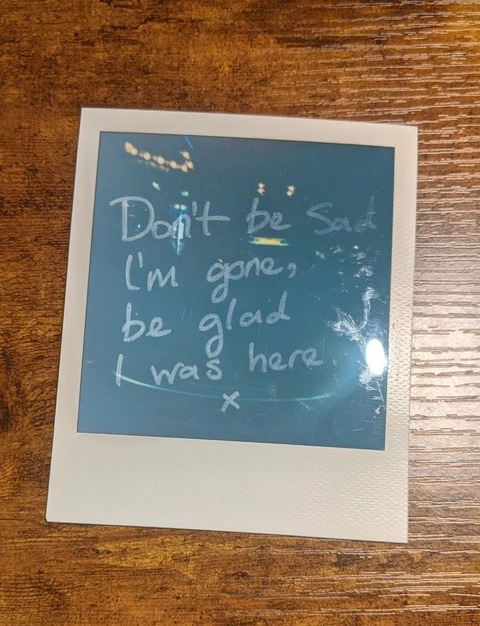 Don't be Sad
I'm gone,
be glad
I was here.
x